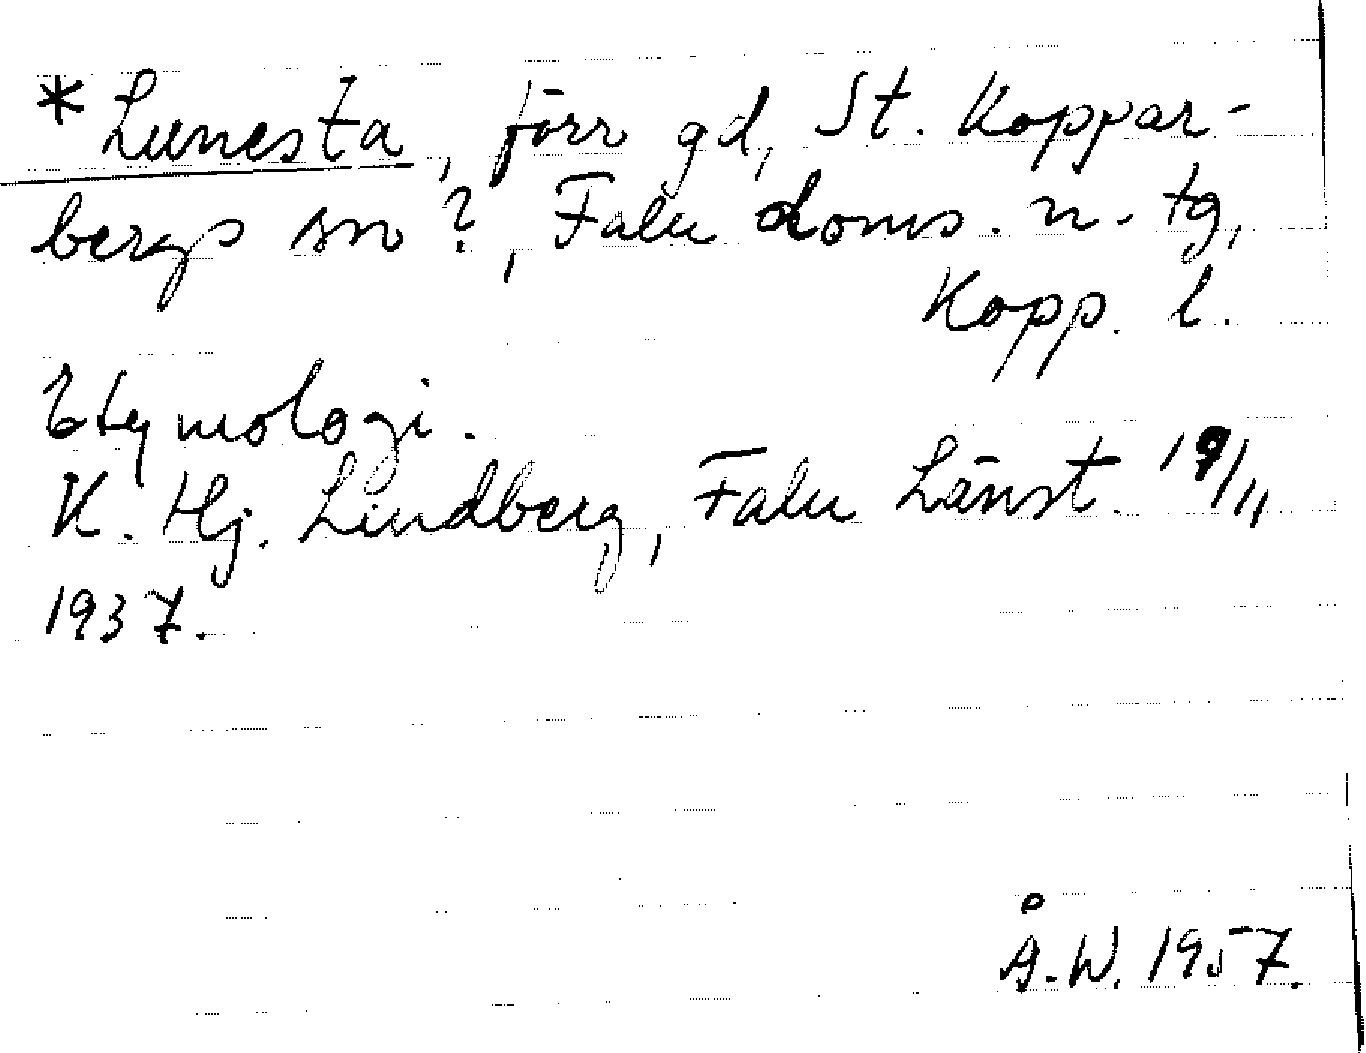 * Lunesta, förr gd, St. Koppar-
bergs sn?, Falu doms. n. tg,
Kopp. l.
Etymologi.
K. Hj. Lindberg, Falu Länst. 19/11
1937.
Å.W. 1957.